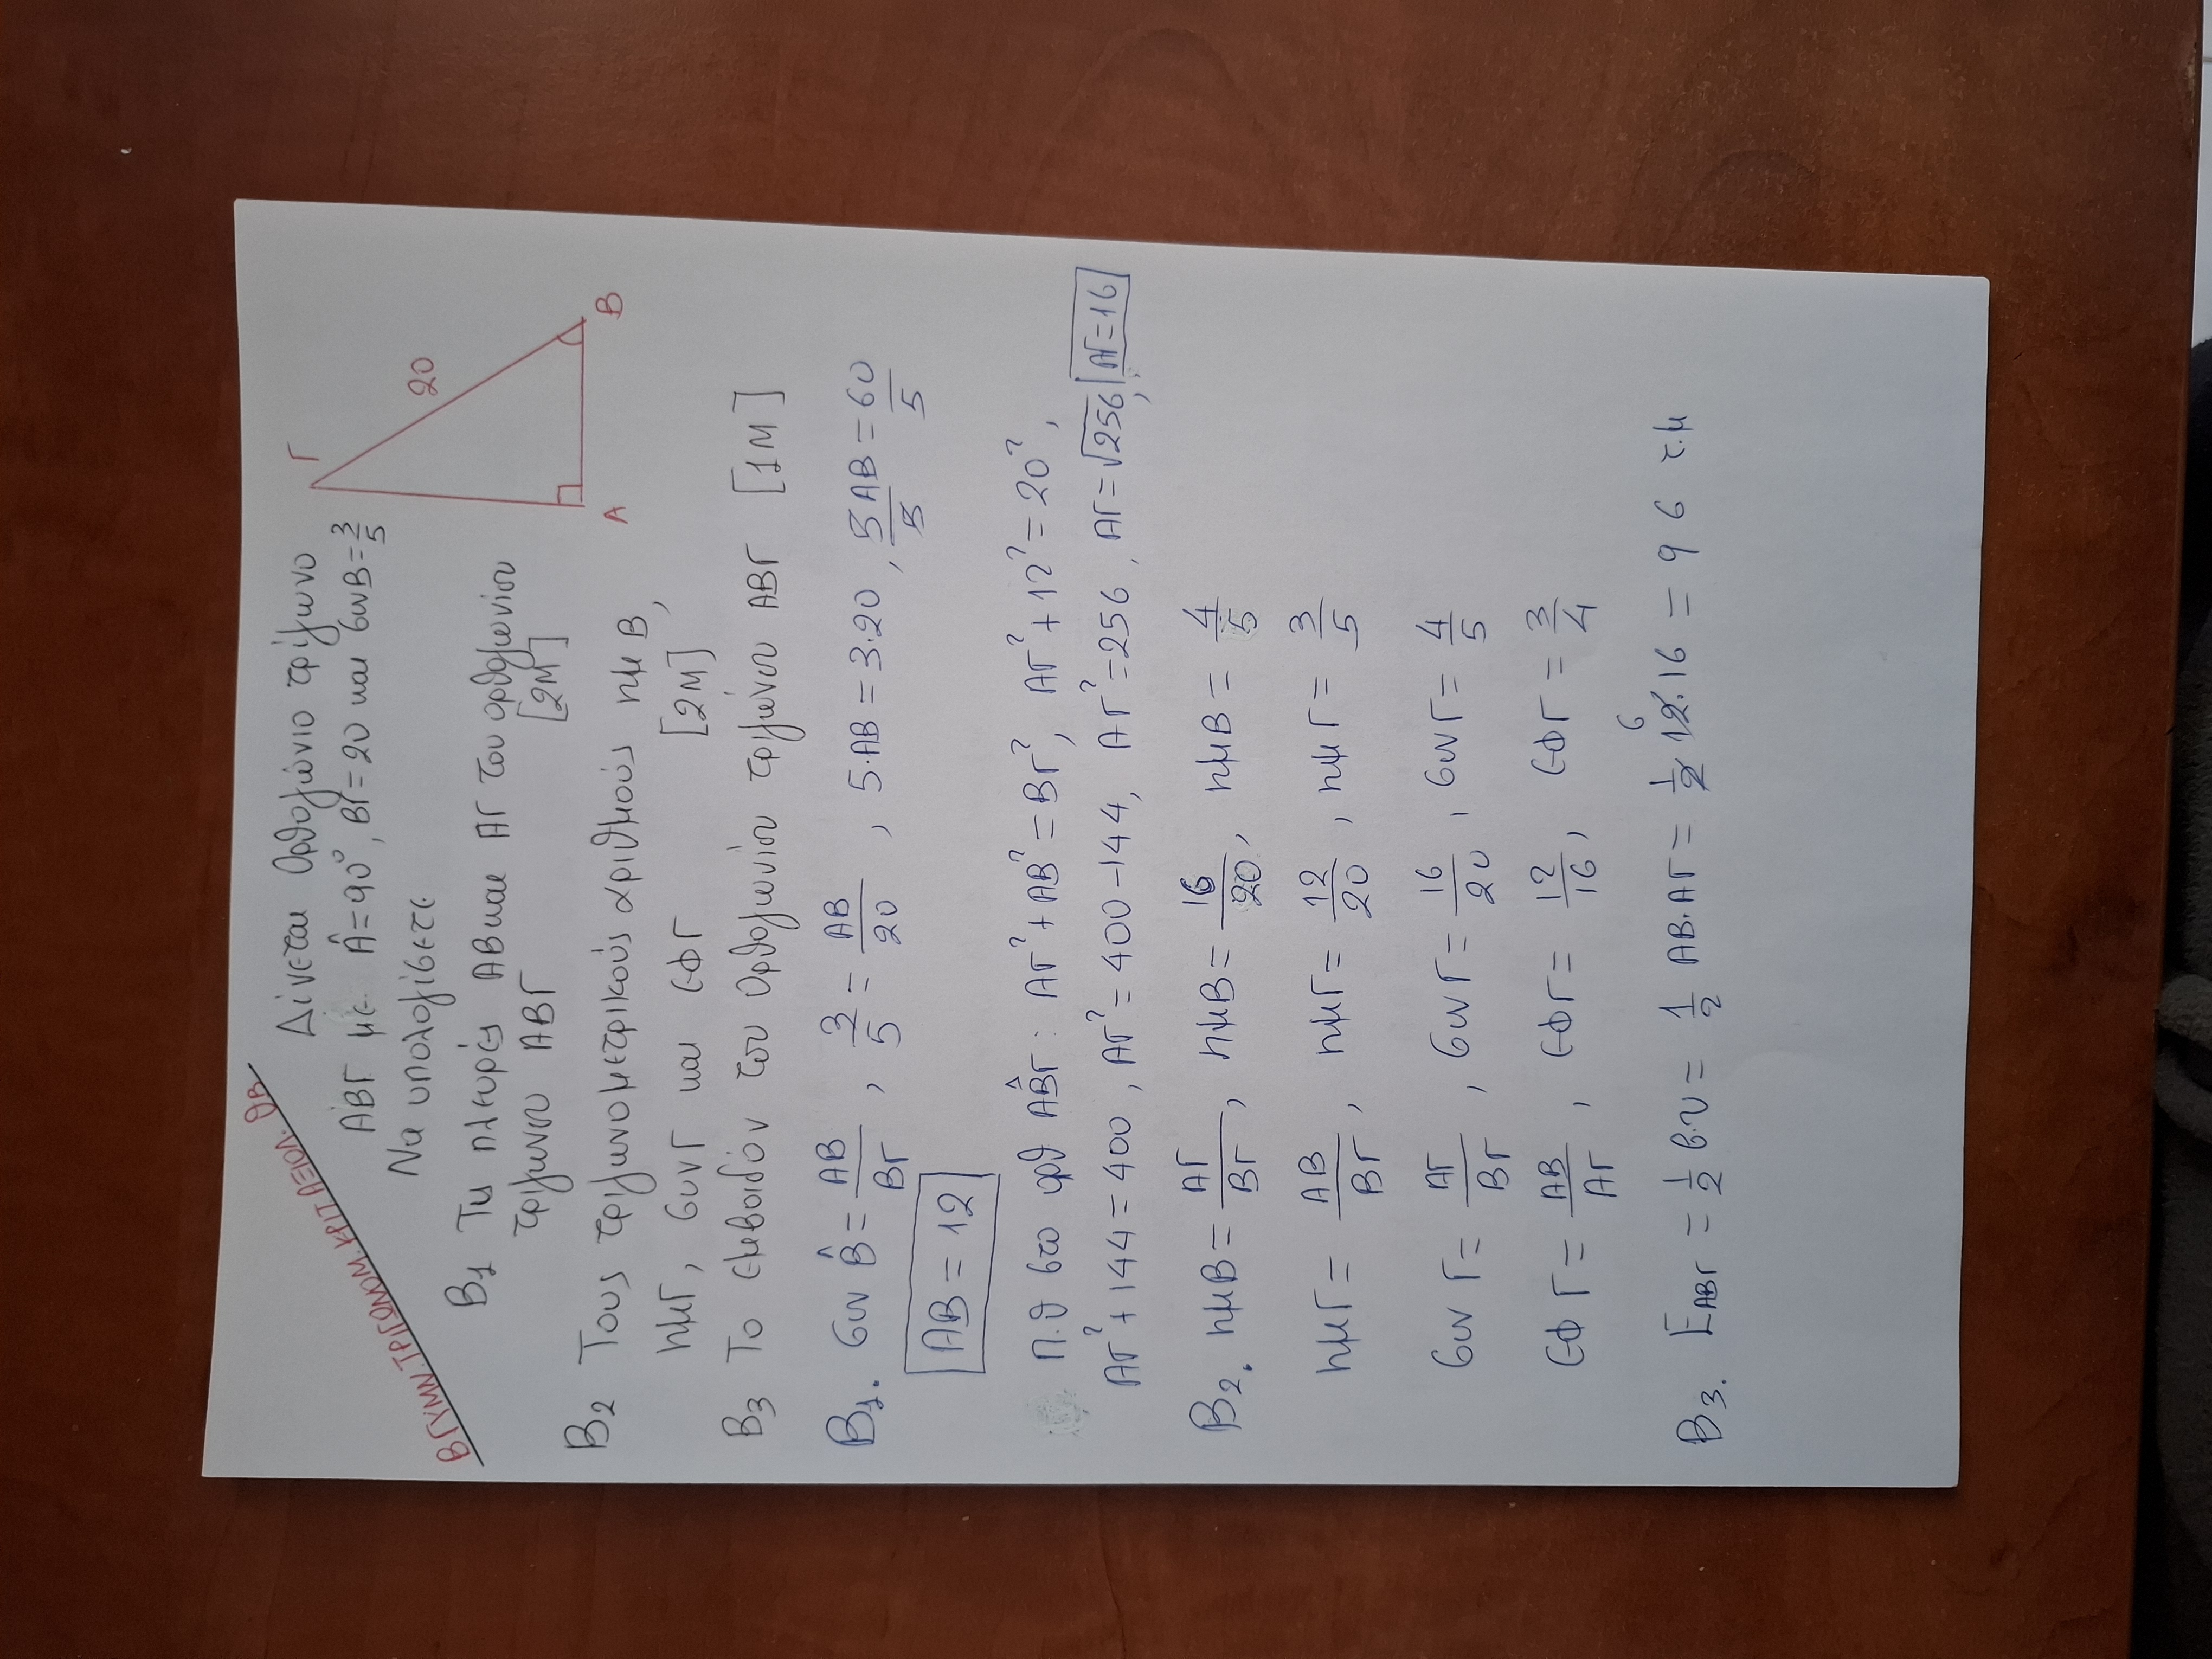 Β ΓΥΜΝ. ΤΡΙΓΩΝΟΜ. ΚΡΙΤ ΑΞΙΟΛ. ΘΒ
Δίνεται Ορθογώνιο τρίγωνο
ΑΒΓ με Â=90°, ΒΓ=20 και συνΒ=3/5
Να υπολογίσετε
Γ
20
Α
Β
Β1 Τις πλευρές ΑΒ και ΑΓ του ορθογωνίου
τριγώνου ΑΒΓ [2Μ]
Β2 Τους τριγωνομετρικούς αριθμούς ημΒ,
ημΓ, συνΓ και εφΓ [2Μ]
Β3 Το εμβαδόν του Ορθογωνίου τριγώνου ΑΒΓ [1Μ]
Β1. συν B̂ = ΑΒ/ΒΓ, 3/5 = ΑΒ/20, 5·ΑΒ=3·20, 5ΑΒ/5=60/5
ΑΒ=12
Π.Θ στο ορθ ΑB̂Γ: ΑΓ²+ΑΒ²=ΒΓ², ΑΓ²+12²=20²,
ΑΓ²+144=400, ΑΓ²=400-144, ΑΓ²=256, ΑΓ=√256, ΑΓ=16
Β2. ημΒ=ΑΓ/ΒΓ, ημΒ=16/20, ημΒ=4/5
ημΓ=ΑΒ/ΒΓ, ημΓ=12/20, ημΓ=3/5
συνΓ=ΑΓ/ΒΓ, συνΓ=16/20, συνΓ=4/5
εφΓ=ΑΒ/ΑΓ, εφΓ=12/16, εφΓ=3/4
Β3. ΕΑΒΓ=1/2 β·υ=1/2 ΑΒ·ΑΓ=1/2 12·16=96 τ.μ
6